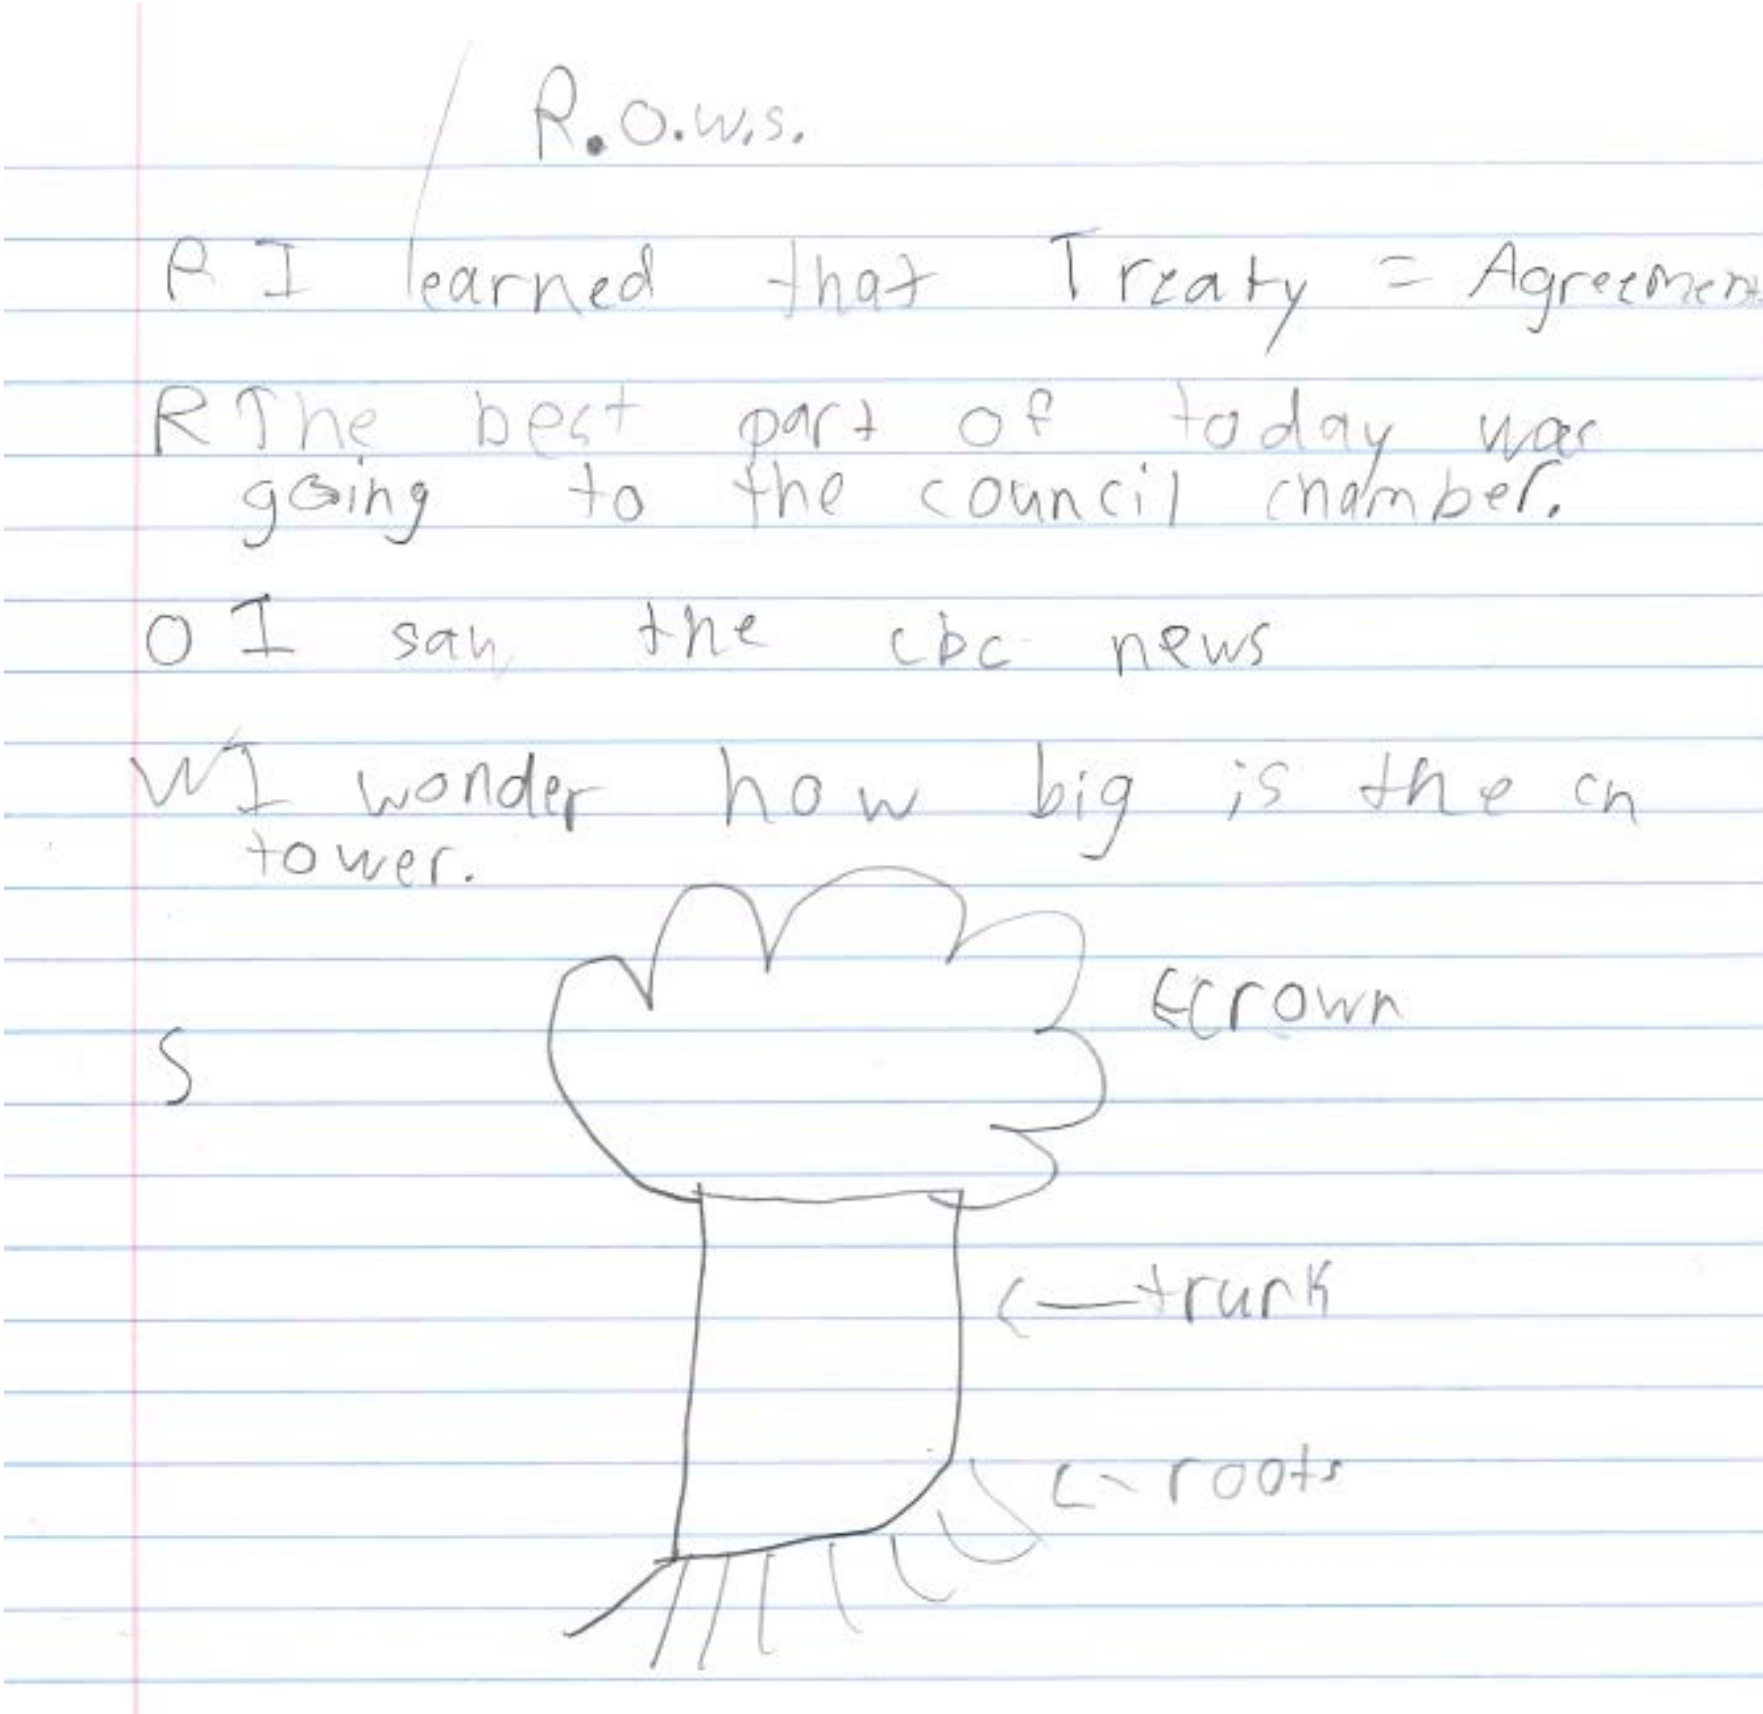 R.O.W.S.
R I learned that Treaty = Agreement
R The best part of today was
going to the council chamber.
O I saw the cbc news
W I wonder how big is the cn
tower.
←crown
S
←trunk
←roots